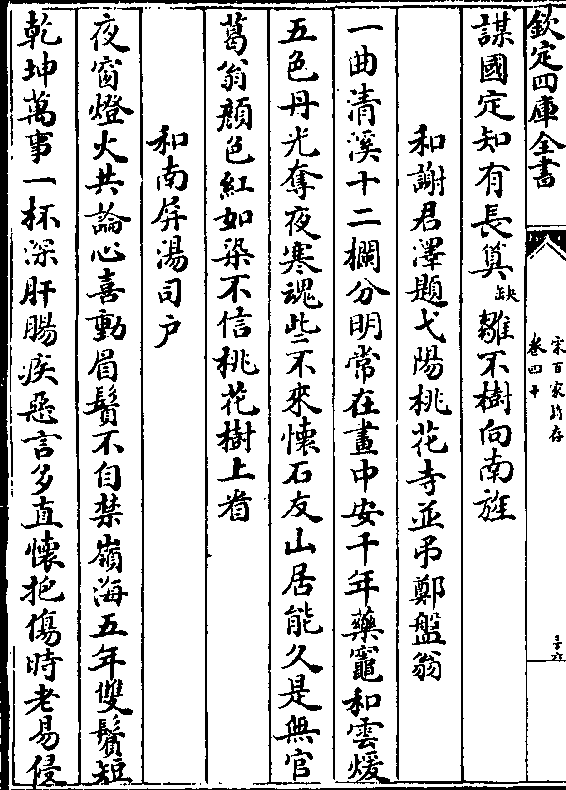 欽定四庫全書
宋百家詩存
卷四十
謀國定知有長算缺雛不樹向南旌
和謝君澤題弋陽桃花寺並弔鄭盤翁
一曲清溪十二欄分明常在畫中安千年藥竈和雲煖
五色丹光奪夜寒魂些不來懷石友山居能久是無官
葛翁顔色紅如染不信桃花樹上看
和南屏湯司户
夜窗燈火共論心喜動眉鬢不自禁嶺海五年雙鬢短
乾坤萬事一杯深肝腸疾惡言多直懷抱傷時老易侵